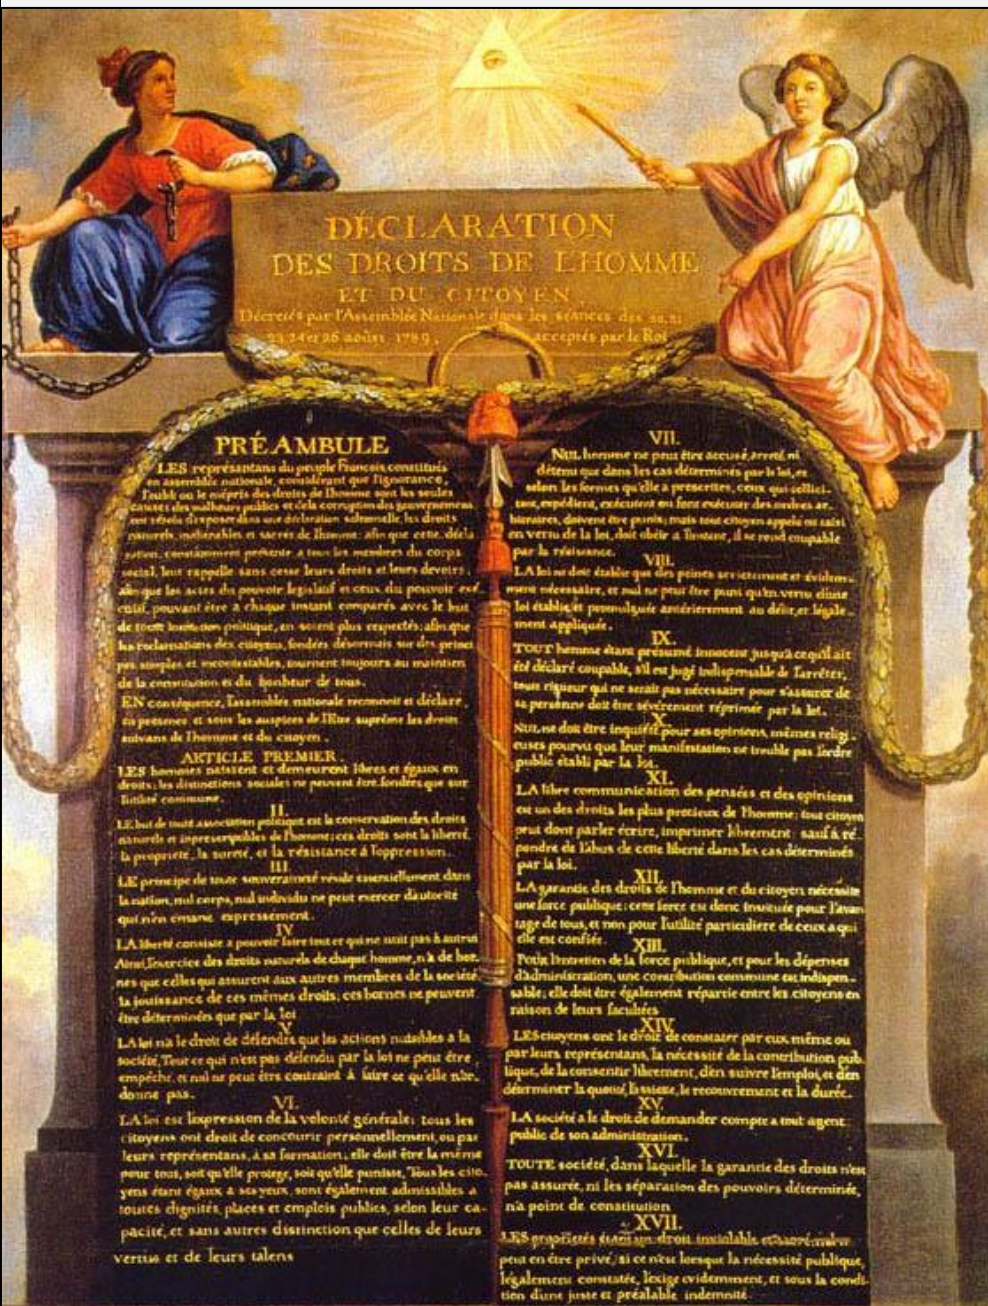 DÉCLARATION
DES DROITS DE L'HOMME
ET DU CITOYEN,
Décretés par l'Assemblée Nationale dans les séances des 20, 21
23 24 et 26 aoûst 1789, acceptés par le Roi
PRÉAMBULE
LES représantans du peuple François, constitués
en assemblée nationale, considérant que l'ignorance,
l'oubli ou le mépris des droits de l'homme sont les seules
causes des malheurs publics et de la corruption des gouvernemens
ont résolu d'exposer dans une déclaration solemnelle, les droits
naturels, inaliénables et sacrés de l'homme; afin que cette décla
ration, constamment présente a tous les membres du corps
social, leur rappelle sans cesse leurs droits et leurs devoirs;
afin que les actes du pouvoir legislatif et ceux du pouvoir exé
cutif, pouvant être a chaque instant comparés avec le but
de toute institution politique, en soient plus respectés; afin que
les reclamations des citoyens, fondées désormais sur des princi
pes simples et incontestables, tournent toujours au maintien
de la constitution et du bonheur de tous.
EN conséquence, l'assemblée nationale reconnoit et déclare,
en presence et sous les auspices de l'Etre suprême les droits
suivans de l'homme et du citoyen.
ARTICLE PREMIER.
LES hommes naissent et demeurent libres et égaux en
droits; les distinctions sociales ne peuvent être fondées que sur
l'utilité commune.
II.
LE but de toute association politique est la conservation des droits
naturels et imprescriptibles de l'homme; ces droits sont la liberté,
la propriété, la sureté, et la résistance à l'oppression.
III.
LE principe de toute souveraineté réside essentiellement dans
la nation, nul corps, nul individu ne peut exercer d'autorité
qui n'en émane expressément.
IV.
LA liberté consiste a pouvoir faire tout ce qui ne nuit pas à autrui
Ainsi, l'exercice des droits naturels de chaque homme, n'a de bor-
nes que celles qui assurent aux autres membres de la société
la jouissance de ces mêmes droits; ces bornes ne peuvent
être déterminées que par la loi
V.
LA loi n'a le droit de défendre que les actions nuisibles à la
société. Tout ce qui n'est pas défendu par la loi ne peut être
empêché, et nul ne peut être contraint à faire ce qu'elle n'or-
donne pas.
VI.
LA loi est l'expression de la volonté générale; tous les
citoyens ont droit de concourir personnellement, ou par
leurs représentans, à sa formation; elle doit être la même
pour tous, soit qu'elle protege, soit qu'elle punisse. Tous les cito-
yens étant égaux à ses yeux, sont également admissibles à
toutes dignités, places et emplois publics, selon leur ca-
pacité, et sans autres distinction que celles de leurs
vertus et de leurs talens
VII.
NUL homme ne peut être accusé, arreté, ni
détenu que dans les cas déterminés par la loi, et
selon les formes qu'elle a prescrites, ceux qui sollici-
tent, expédient, exécutent ou font exécuter des ordres ar-
bitraires, doivent être punis; mais tout citoyen appelé ou saisi
en vertu de la loi, doit obéir a l'instant, il se rend coupable
par la résistance.
VIII.
LA loi ne doit établir que des peines strictement et évidem-
ment nécessaire, et nul ne peut être puni qu'en vertu d'une
loi établie et promulguée antérierement au délit, et légale-
ment appliquée.
IX.
TOUT homme étant présumé innocent jusqu'à ce qu'il ait
été déclaré coupable, s'il est jugé indispensable de l'arrêter,
toute rigueur qui ne serait pas nécessaire pour s'assurer de
sa personne doit être sévèrement réprimée par la loi.
X.
NUL ne doit être inquiété pour ses opinions, mêmes religi-
euses pourvu que leur manifestation ne trouble pas l'ordre
public établi par la loi.
XI.
LA libre communication des pensées et des opinions
est un des droits les plus precieux de l'homme; tout citoyen
peut dont parler écrire, imprimer librement: sauf à ré-
pondre de l'abus de cette liberté dans les cas déterminés
par la loi.
XII.
LA garantie des droits de l'homme et du citoyen nécessite
une force publique; cette force est donc instituée pour l'avan-
tage de tous, et non pour l'utilité particuliere de ceux a qui
elle est confiée.
XIII.
Pour l'entretien de la force publique, et pour les dépenses
d'administration, une contribution commune est indispen-
sable; elle doit être également répartie entre les citoyens en
raison de leurs facultées
XIV.
LES citoyens ont le droit de constater par eux même ou
par leurs représentans, la nécessité de la contribution pub-
lique, de la consentir librement, d'en suivre l'emploi, et d'en
déterminer la quotité, l'assiette, le recouvrement et la durée.
XV.
LA société a le droit de demander compte a tout agent
public de son administration.
XVI.
TOUTE société, dans laquelle la garantie des droits n'est
pas assurée, ni les séparation des pouvoirs déterminée,
n'a point de constitution
XVII.
LES propriétés étant un droit inviolable et sacré, nul ne
peut en être privé, si ce n'est lorsque la nécessité publique,
légalement constatée, l'exige evidemment, et sous la condi-
tion d'une juste et préalable indemnité